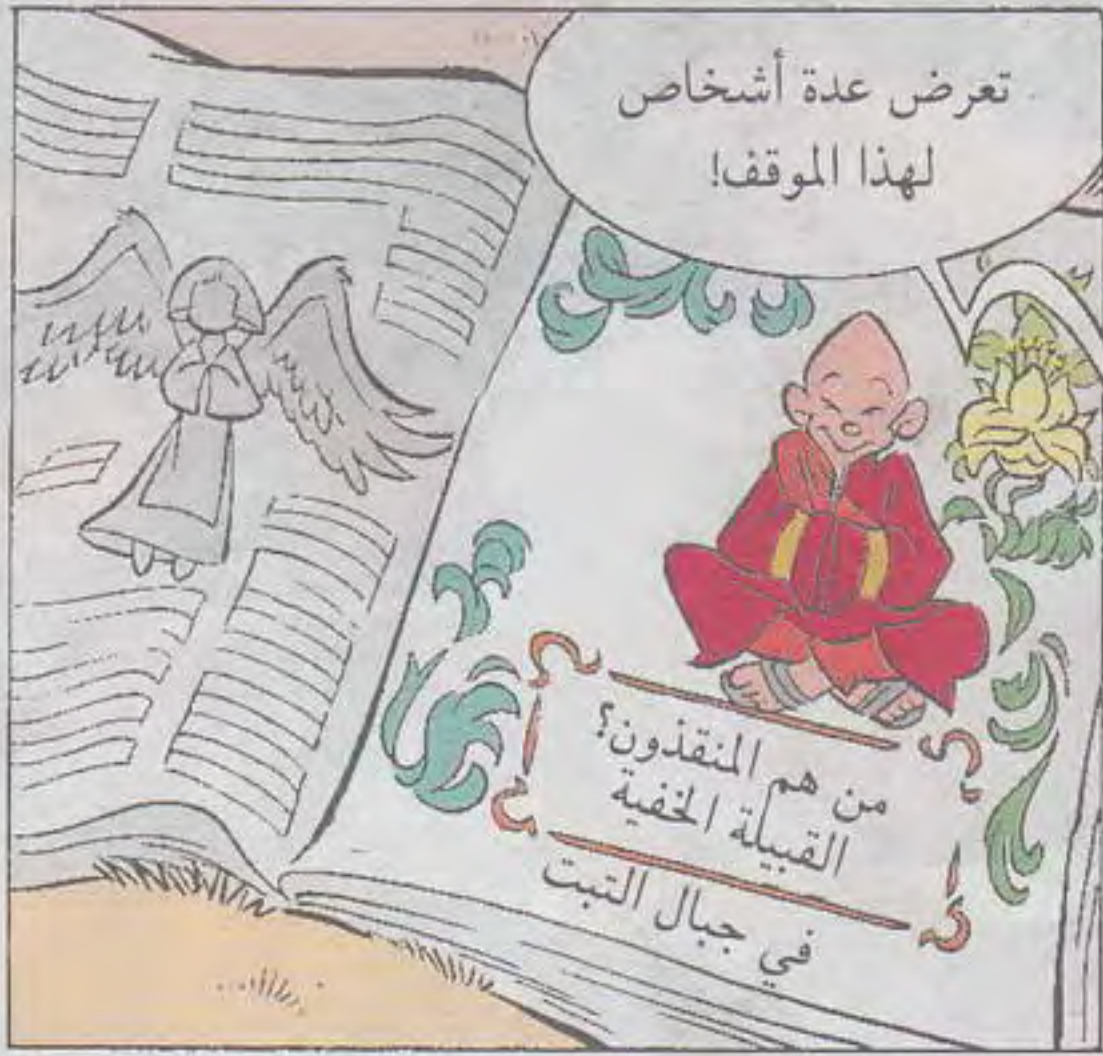 تعرض عدة أشخاص
لهذا الموقف!
من هم المنقذون؟
القبيلة الخفية
في جبال التبت